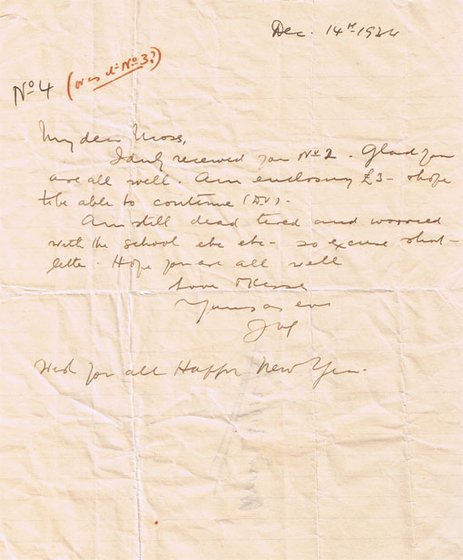 Dec. 14th 1924
No 4 (or is it No 3?)
My dear
I duly received your No 2. Glad you
are all well. Am enclosing £3 - & hope
to be able to continue (D.V.).
Am still dead tired and worried
with the school etc etc - so excuse short
letter. Hope you are all well
Love & Kisses
Yours as ever
Wish you all Happy New Year.